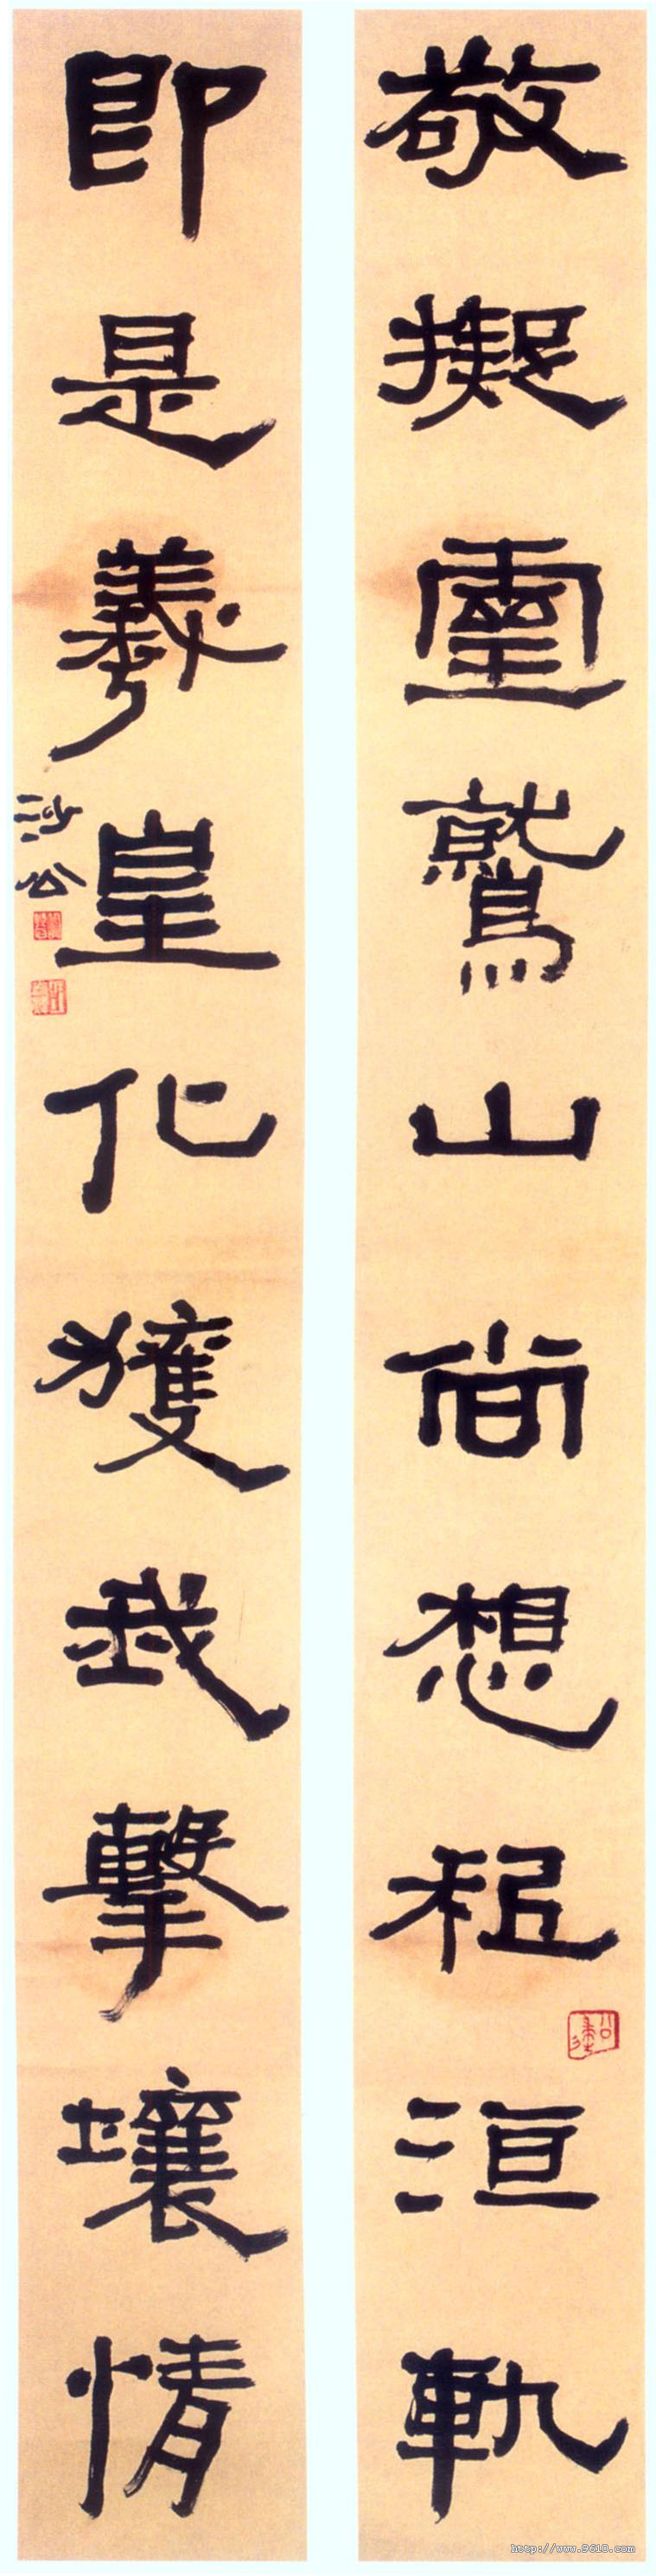 敬擬靈鷲山尚想祗洹軌
即是羲皇化獲我擊壤情
沙公
http://www.9610.com